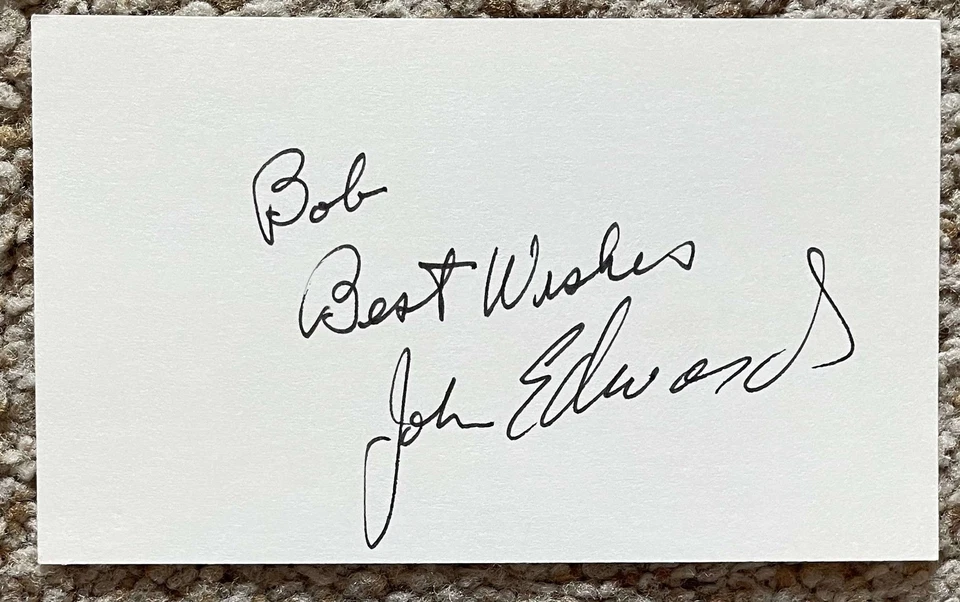 Bob
Best Wishes
John Edwards